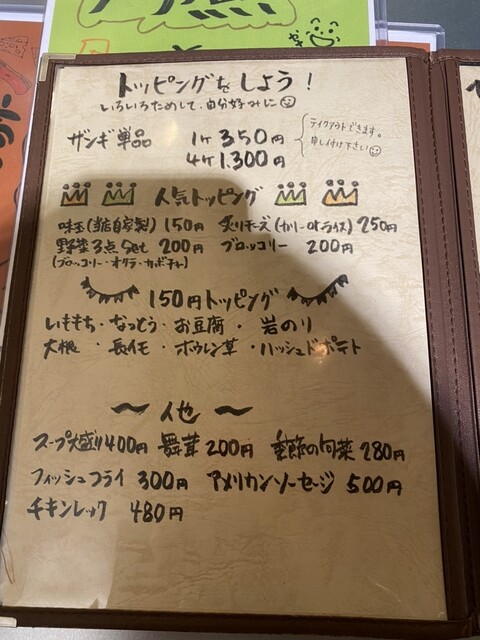 トッピングをしよう！
いろいろためして、自分好みに
ザンギ単品 1ケ 350円
4ケ 1.300円
テイクアウトできます。
申し付け下さい
人気トッピング
味玉(当店自家製) 150円 炙りチーズ(カリーorライス) 250円
野菜3点Set 200円 ブロッコリー 200円
(ブロッコリー・オクラ・カボチャ)
150円トッピング
いももち・なっとう・お豆腐・岩のり
大根・長イモ・ホウレン草・ハッシュドポテト
〜 他 〜
スープ大盛り400円 舞茸 200円 季節の旬菜 280円
フィッシュフライ 300円 アメリカンソーセージ 500円
チキンレッグ 480円